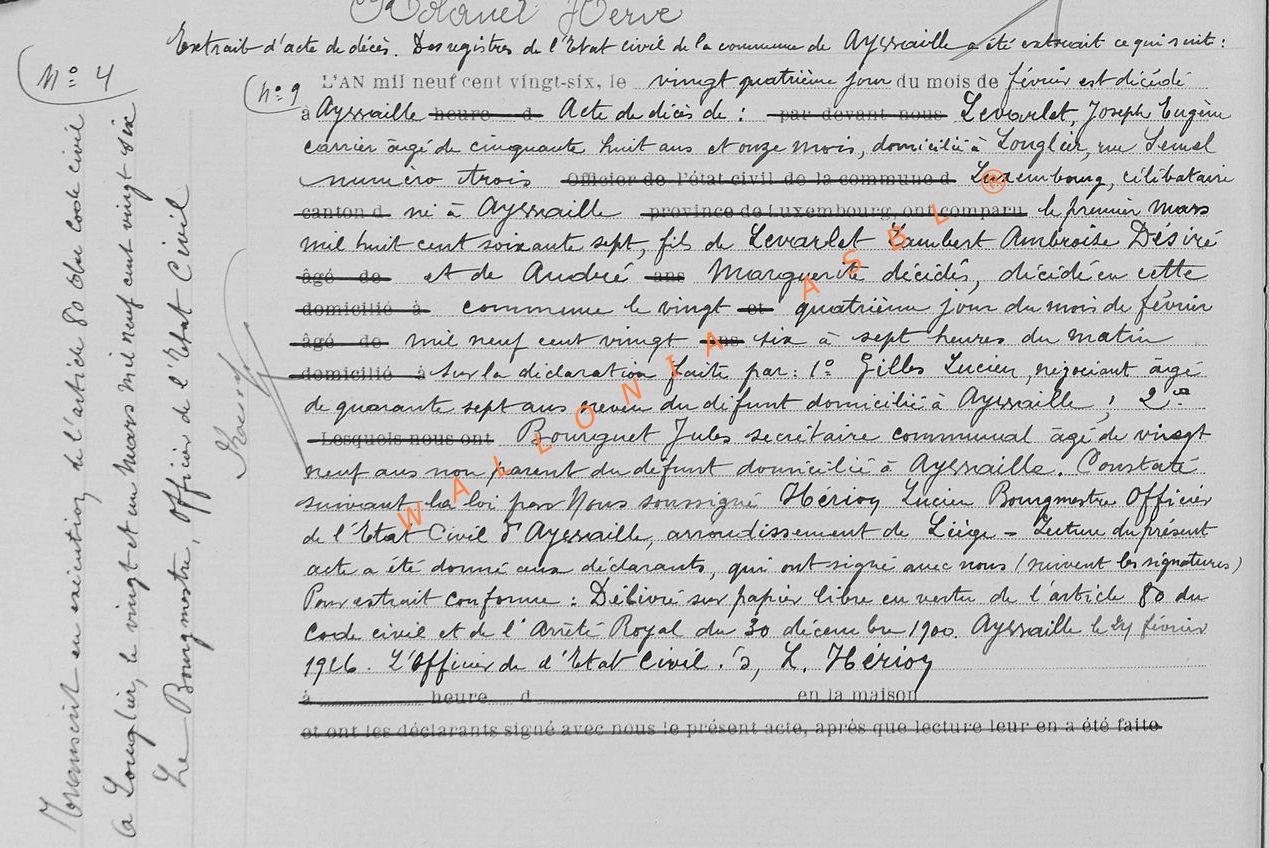 Extrait d'acte de décès. Des registres de l'Etat civil de la commune de Aywaille a été extrait ce qui suit :
N° 4
N° 9
L'AN mil neuf cent vingt-six, le vingt quatrième jour du mois de février est décédé
à Aywaille heure d Acte de décès de : par devant nous Levarlet, Joseph Eugène
carrier âgé de cinquante huit ans et onze mois, domicilié à Longlier, rue
numero trois Officier de l'état civil de la commune d Luxembourg, célibataire
canton d né à Aywaille province de Luxembourg, ont comparu le premier mars
mil huit cent soixante sept, fils de Levarlet Lambert Ambroise Désiré
âgé de et de André ans Marguerite décédés, décédé en cette
domicilié à commune le vingt et quatrième jour du mois de février
âgé de mil neuf cent vingt ans six à sept heures du matin
domicilié à sur la déclaration faite par : 1° Gilles Lucien, négociant âgé
de quarante sept ans neveu du défunt domicilié à Aywaille ; 2°
Lesquels nous ont Bourguet Jules secrétaire communal âgé de vingt
neuf ans non parent du défunt domicilié à Aywaille. Constaté
suivant la loi par Nous soussigné Hérion Lucien Bourgmestre Officier
de l'Etat Civil d'Aywaille, arrondissement de Liège - Lecture du présent
acte a été donné aux déclarants, qui ont signé avec nous (suivent les signatures)
Pour extrait conforme : Délivré sur papier libre en vertu de l'article 80 du
Code civil et de l'Arrêté Royal du 30 décembre 1900. Aywaille le 24 février
1926. L'Officier de d'Etat Civil. s, L. Hérion
à heure d en la maison
et ont les déclarants signé avec nous le présent acte, après que lecture leur en a été faite
Transcrit en exécution de l'article 80 du Code civil
à Longlier, le vingt et un Mars mil neuf cent vingt six
Le Bourgmestre, Officier de l'Etat Civil
WALLONIA ASBL ®